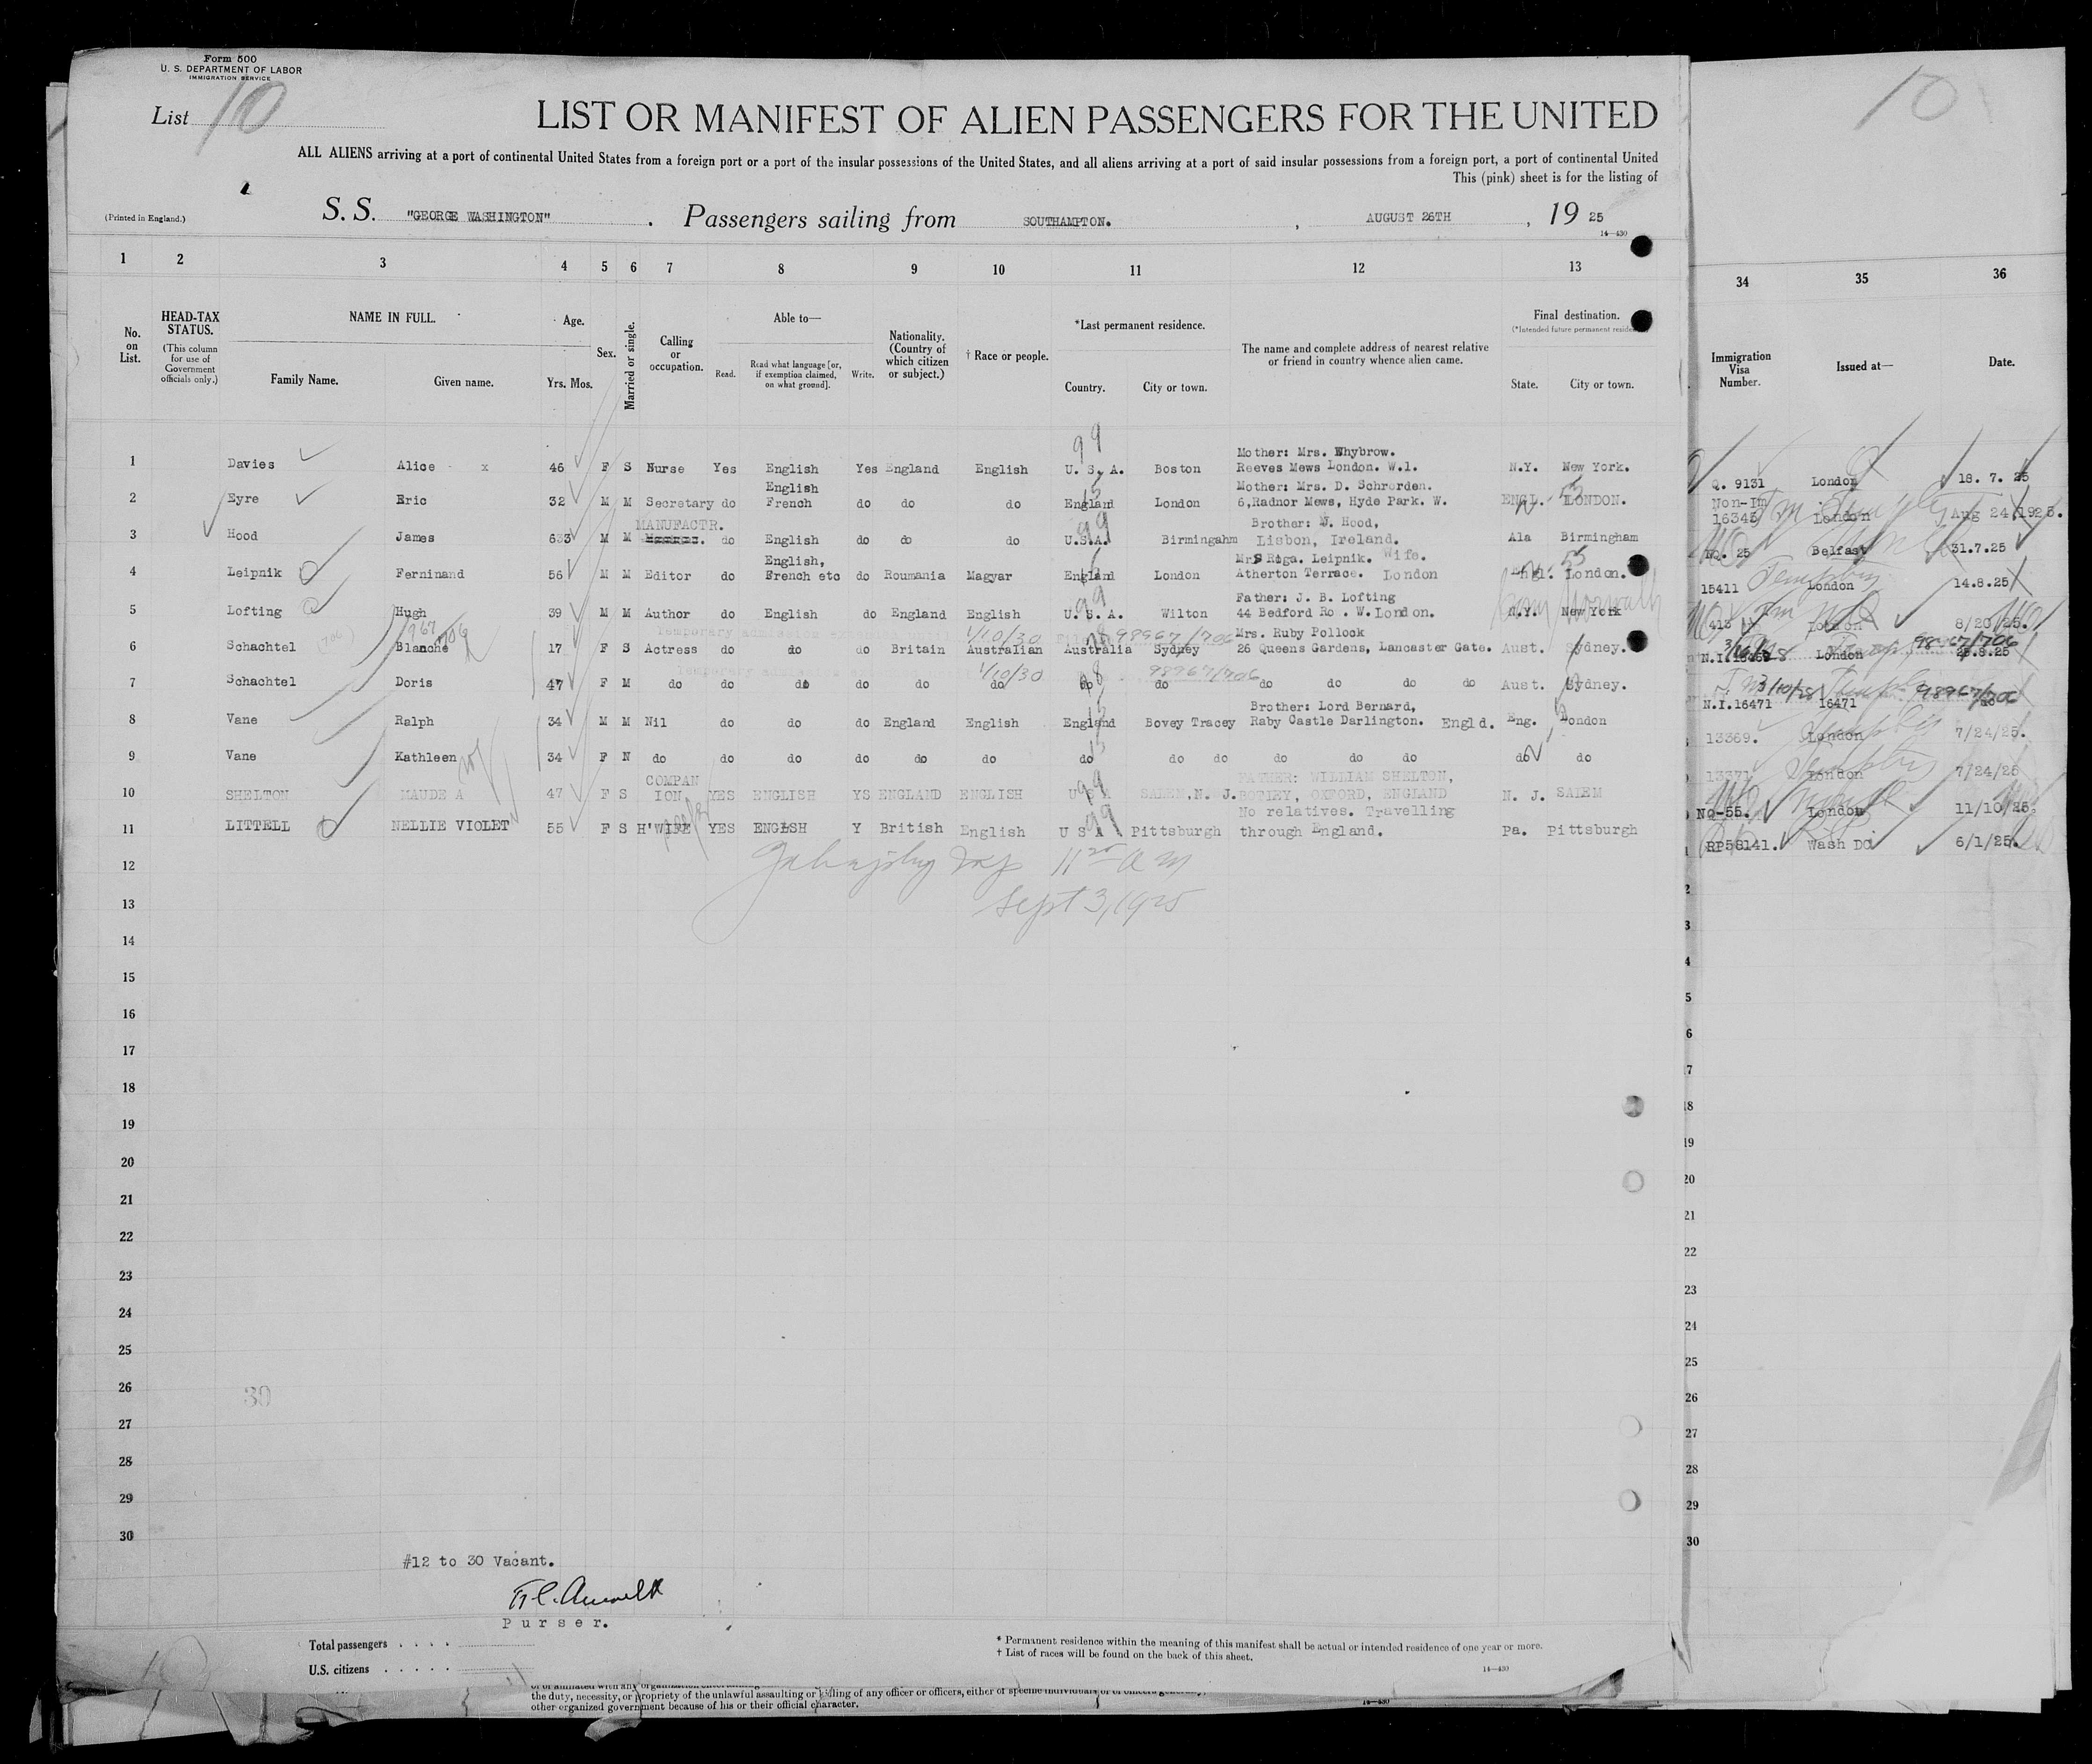 Form 500
U. S. DEPARTMENT OF LABOR
IMMIGRATION SERVICE
List 10
LIST OR MANIFEST OF ALIEN PASSENGERS FOR THE UNITED
10
ALL ALIENS arriving at a port of continental United States from a foreign port or a port of the insular possessions of the United States, and all aliens arriving at a port of said insular possessions from a foreign port, a port of continental United
This (pink) sheet is for the listing of
(Printed in England.)
S. S. "GEORGE WASHINGTON" . Passengers sailing from SOUTHAMPTON. , AUGUST 26TH , 19 25
14—430
1 2 3 4 5 6 7 8 9 10 11 12 13 34 35 36
No. on List.
HEAD-TAX STATUS.
(This column for use of Government officials only.)
NAME IN FULL.
Family Name. Given name.
Age.
Yrs. Mos.
Sex.
Married or single.
Calling or occupation.
Able to—
Read. Read what language [or, if exemption claimed, on what ground]. Write.
Nationality. (Country of which citizen or subject.)
† Race or people.
*Last permanent residence.
Country. City or town.
The name and complete address of nearest relative or friend in country whence alien came.
Final destination.
(*Intended future permanent
State. City or town.
Immigration Visa Number.
Issued at—
Date.
99
Mother: Mrs. Whybrow.
1 Davies Alice x 46 F S Nurse Yes English Yes England English U. S. A. Boston Reeves Mews London. W.1. N.Y. New York. Q. 9131 London 18. 7. 25
English Mother: Mrs. D. Schrorden. Non-Im
2 Eyre Eric 32 M M Secretary do French do do do England London 6,Radnor Mews, Hyde Park. W. ENGL. LONDON. 16343 London Aug 24 1925.
MANUFACTR. 99 Brother: W. Hood,
3 Hood James 633 M M do English do do do U.S.A. Birmingahm Lisbon, Ireland. Ala Birmingham NQ. 25 Belfast 31.7.25
English, Mrs Roga. Leipnik. Wife.
4 Leipnik Ferninand 56 M M Editor do French etc do Roumania Magyar England London Atherton Terrace. London Engl. London. 15411 London 14.8.25
99 Father: J. B. Lofting
5 Lofting Hugh 39 M M Author do English do England English U. S. A. Wilton 44 Bedford Ro . W. London. N.Y. New York 413 London 8/20/25.
Temporary admission 1/10/30 98967/706 Mrs. Ruby Pollock 98967/706
6 Schachtel Blanche 17 F S Actress do do do Britain Australian Australia Sydney 26 Queens Gardens, Lancaster Gate. Aust. Sydney. London 25.8.25
Temporary 1/10/30 98967/706
7 Schachtel Doris 47 F M do do do do do do do do do do do do Aust. Sydney. N.I.16471 16471 do
3/10/28 98967/706
Brother: Lord Bernard,
8 Vane Ralph 34 M M Nil do do do England English England Bovey Tracey Raby Castle Darlington. Engld. Eng. London 13369. London 7/24/25.
9 Vane Kathleen 34 F N do do do do do do do do do do do do do do do 13371 London 7/24/25
COMPAN 99 FATHER: WILLIAM SHELTON,
10 SHELTON MAUDE A 47 F S ION YES ENGLISH YS ENGLAND ENGLISH U S A SALEM,N. J. BOTLEY, OXFORD, ENGLAND N. J. SALEM NQ-55. London 11/10/25.
99 No relatives. Travelling
11 LITTELL NELLIE VIOLET 55 F S H'WIFE YES ENGLSH Y British English U S A Pittsburgh through England. Pa. Pittsburgh RP58141. Wash DC 6/1/25.
12
Sept 3, 1925
13
14
15
16
17
18
19
20
21
22
23
24
25
26 30
27
28
29
30
#12 to 30 Vacant.
Purser.
Total passengers . . . .
U.S. citizens . . . . .
* Permanent residence within the meaning of this manifest shall be actual or intended residence of one year or more.
† List of races will be found on the back of this sheet.
14—430
the duty, necessity, or propriety of the unlawful assaulting or killing of any officer or officers, either of specific individuals or of officers
other organized government because of his or their official character.
14—430